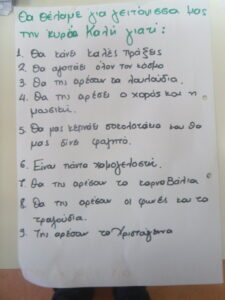 Θα θέλαμε για γειτόνισσα μας
την κυρία Καλή γιατί:
1. Θα κάνει καλές πράξεις
2. Θα αγαπάει όλον τον κόσμο
3. Θα της αρέσουν τα λουλούδια.
4. Θα της αρέσει ο χορός και η
μουσική.
5. Θα μας κερνάει σοκολατάκια και θα
μας δίνει φαγητό.
6. Είναι πάντα χαμογελαστή.
7. Θα της αρέσουν τα καρναβάλια
8. Θα της αρέσουν οι φωνές και τα
τραγούδια.
9. Της αρέσουν τα Χριστούγεννα